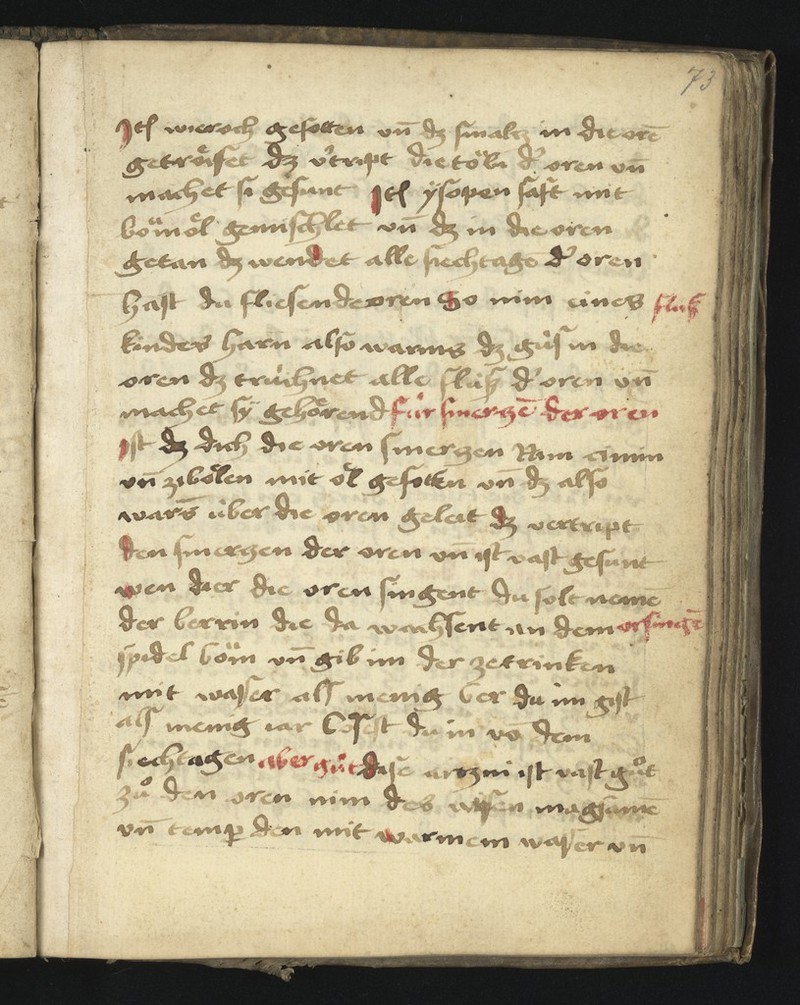 73
Itē wieroch gesotten vn̄ dz smaltz in die orē
getröifet dz v'tript die töbi d' oren vn̄
machet si gesunt Itē ysopen saft mit
bömöl gemischlet vn̄ dz in die oren
getan dz wendet alle siechtagē d' oren
hast du fliesende oren So nim eines fluß
kindes harn also warms dz güs in die
oren dz trüchnet alle flüß d' oren vn̄
machet sy gehörend für smerczē der oren
Ist dz dich die oren smerczen Nim
vn̄ zibolen mit öl gesotten vn̄ dz also
warms über die oren geleit dz vertript
den smerczen der oren vn̄ ist vast gesunt
wen dier die oren singent du solt nemē
der berrin die da wachsent an dem orsingē
spidel böm vn̄ gib im der ze trinken
mit waser als menig ber du im gist
als menig iar losest du in vō dem
siechtagen aber gůt dise artzni ist vast gůt
zů den oren nim des wisen magsamē
vn̄ temper den mit warmem waser vn̄